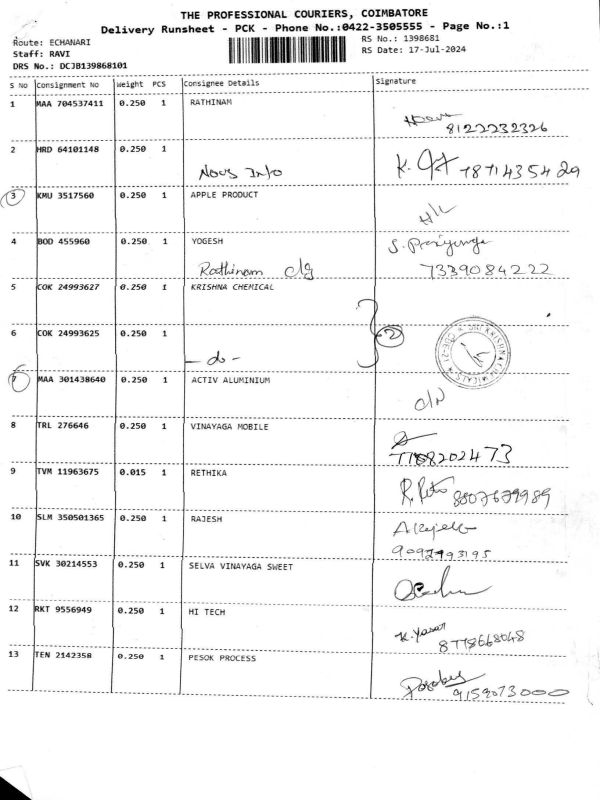 THE PROFESSIONAL COURIERS, COIMBATORE
Delivery Runsheet - PCK - Phone No.:0422-3505555 - Page No.:1
Route: ECHANARI RS No.: 1398681
Staff: RAVI RS Date: 17-Jul-2024
DRS No.: DCJB139868101
S No Consignment No Weight PCS Consignee Details Signature
1 MAA 704537411 0.250 1 RATHINAM
8122232326
2 HRD 64101148 0.250 1
Novs Info 7871435429
3 KMU 3517560 0.250 1 APPLE PRODUCT
4 BOD 455960 0.250 1 YOGESH S. Priyanga
Rathinam clg 7339084222
5 COK 24993627 0.250 1 KRISHNA CHEMICAL
6 COK 24993625 0.250 1 2
- do -
7 MAA 301438640 0.250 1 ACTIV ALUMINIUM
8 TRL 276646 0.250 1 VINAYAGA MOBILE
9 TVM 11963675 0.015 1 RETHIKA
10 SLM 350501365 0.250 1 RAJESH
11 SVK 30214553 0.250 1 SELVA VINAYAGA SWEET
12 RKT 9556949 0.250 1 HI TECH
K. Yasar
8778668048
13 TEN 2142358 0.250 1 PESOK PROCESS
9159073000